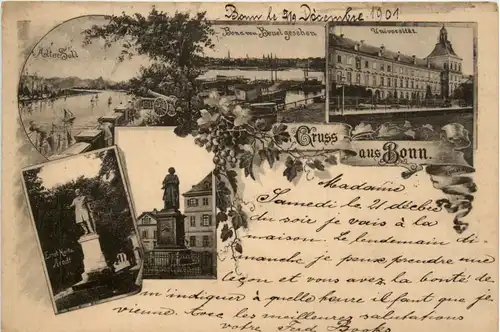 Bonn le 9/10 Décembre 1901
Alter Zoll
Bonn von Beuel gesehen
Universität.
Gruss
aus Bonn.
Ernst Moritz
Arndt
Madame
Samedi le 21 décbre
du soir je vais à la
maison. Le lendemain di-
manche je peux prendre une
leçon et vous avez la bonté de
m'indiquer à quelle heure il faut que je
vienne. Avec les meilleures salutations
votre Fred